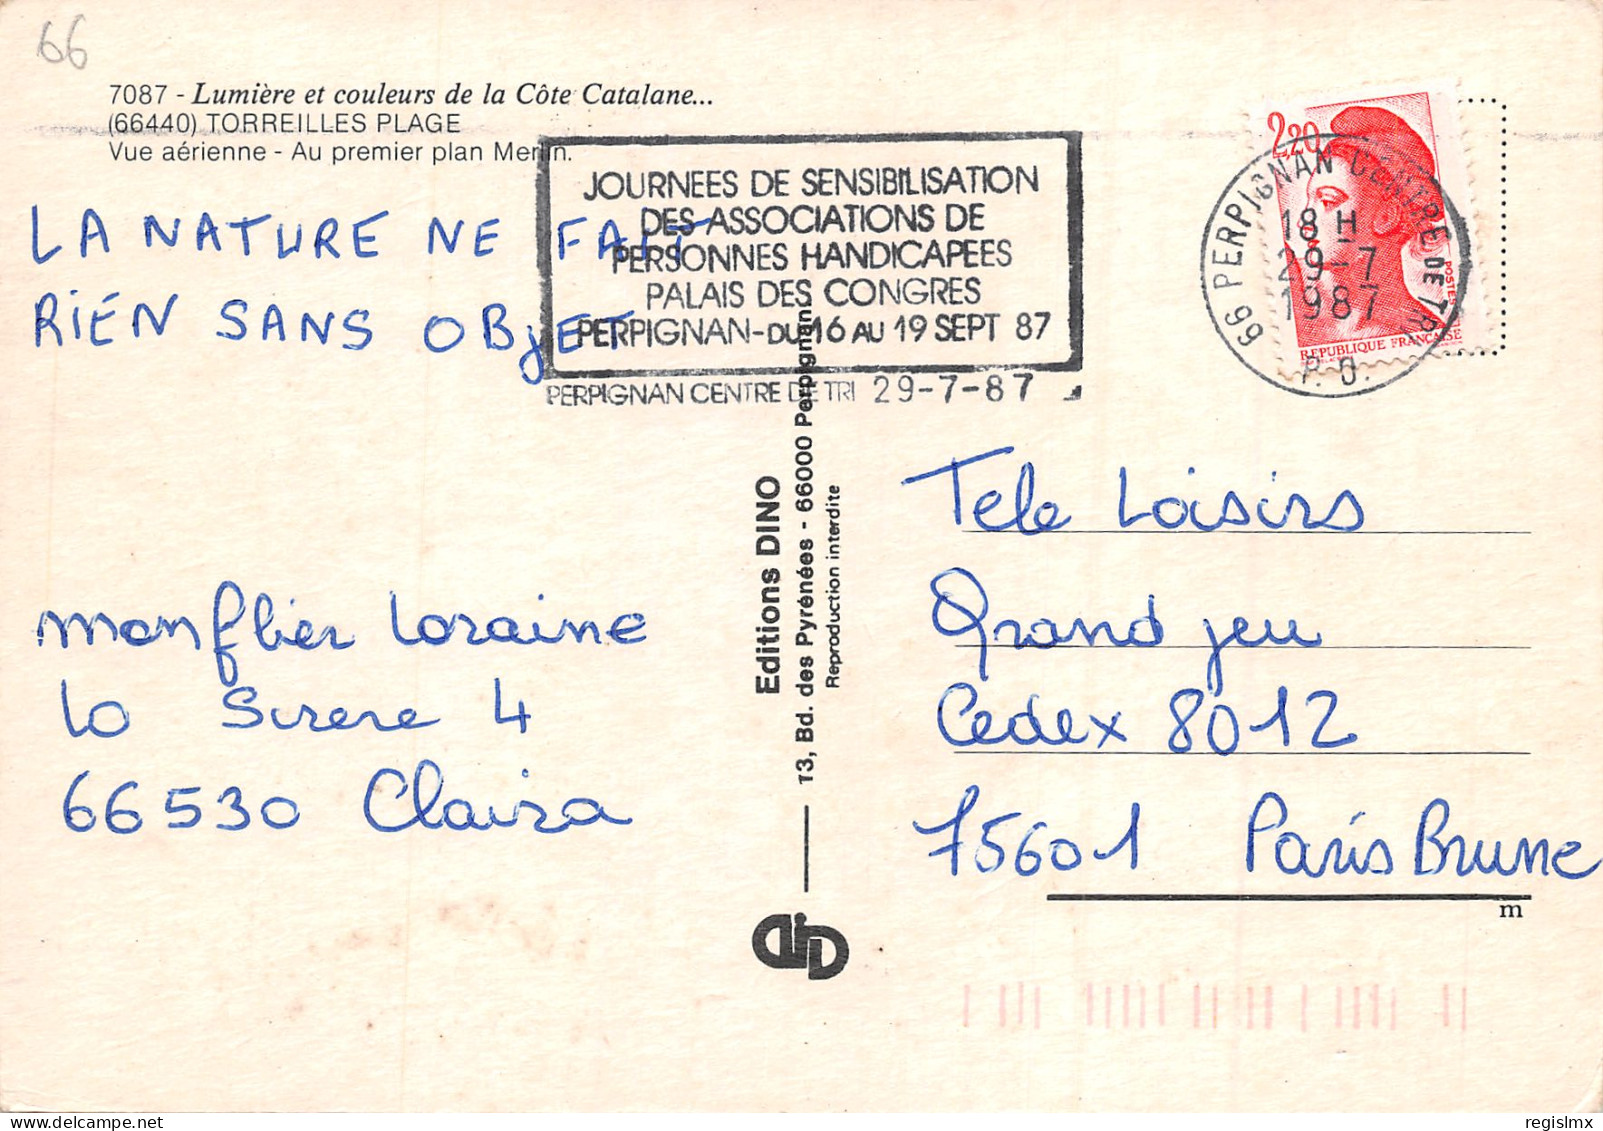 66
7087 - Lumière et couleurs de la Côte Catalane...
(66440) TORREILLES PLAGE
Vue aérienne - Au premier plan Merlin.
JOURNEES DE SENSIBILISATION
DES ASSOCIATIONS DE
PERSONNES HANDICAPEES
PALAIS DES CONGRES
PERPIGNAN-DU 16 AU 19 SEPT 87
PERPIGNAN CENTRE DE TRI 29-7-87
2,20
POSTES
REPUBLIQUE FRANÇAISE
66 PERPIGNAN CENTRE DE TRI
18 H
29-7
1987
P.O.
LA NATURE NE FAIT
RIEN SANS OBjET
monflier Loraine
La Sirere 4
66530 Claira
Editions DINO
13, Bd. des Pyrénées - 66000 Perpignan
Reproduction interdite
Tele Loisirs
Grand jeu
Cedex 8012
75601 Paris Brune
m
regislmx